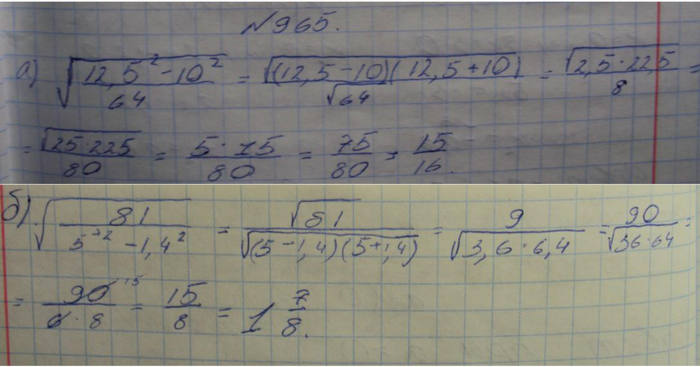 №965.
а) √((12,5² - 10²)/64) = √((12,5-10)(12,5+10))/√64 = √(2,5·22,5)/8 =
= √(25·225)/80 = (5·15)/80 = 75/80 = 15/16.
б) √(81/(5² - 1,4²)) = √81/√((5-1,4)(5+1,4)) = 9/√(3,6·6,4) = 90/√(36·64) =
= 90/(6·8) 15 = 15/8 = 1 7/8.